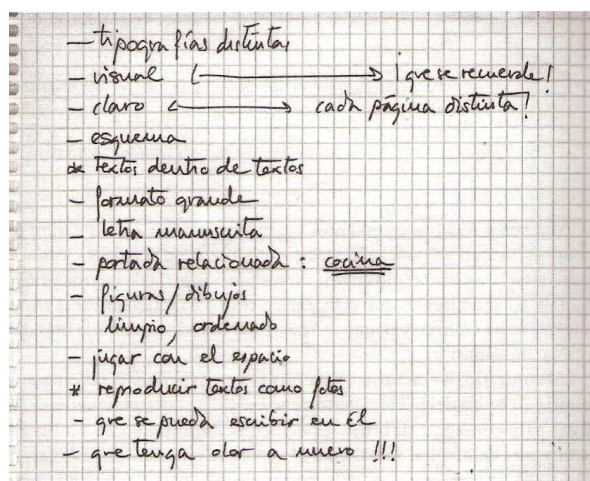 - tipografías distintas
- visual ⟷ ¡que se recuerde!
- claro ⟷ cada página distinta!
- esquema
* textos dentro de textos
- formato grande
- letra manuscrita
- portada relacionada : cocina
- figuras / dibujos
limpio, ordenado
- jugar con el espacio
* reproducir textos como fotos
- que se pueda escribir en ÉL
- que tenga olor a nuevo !!!